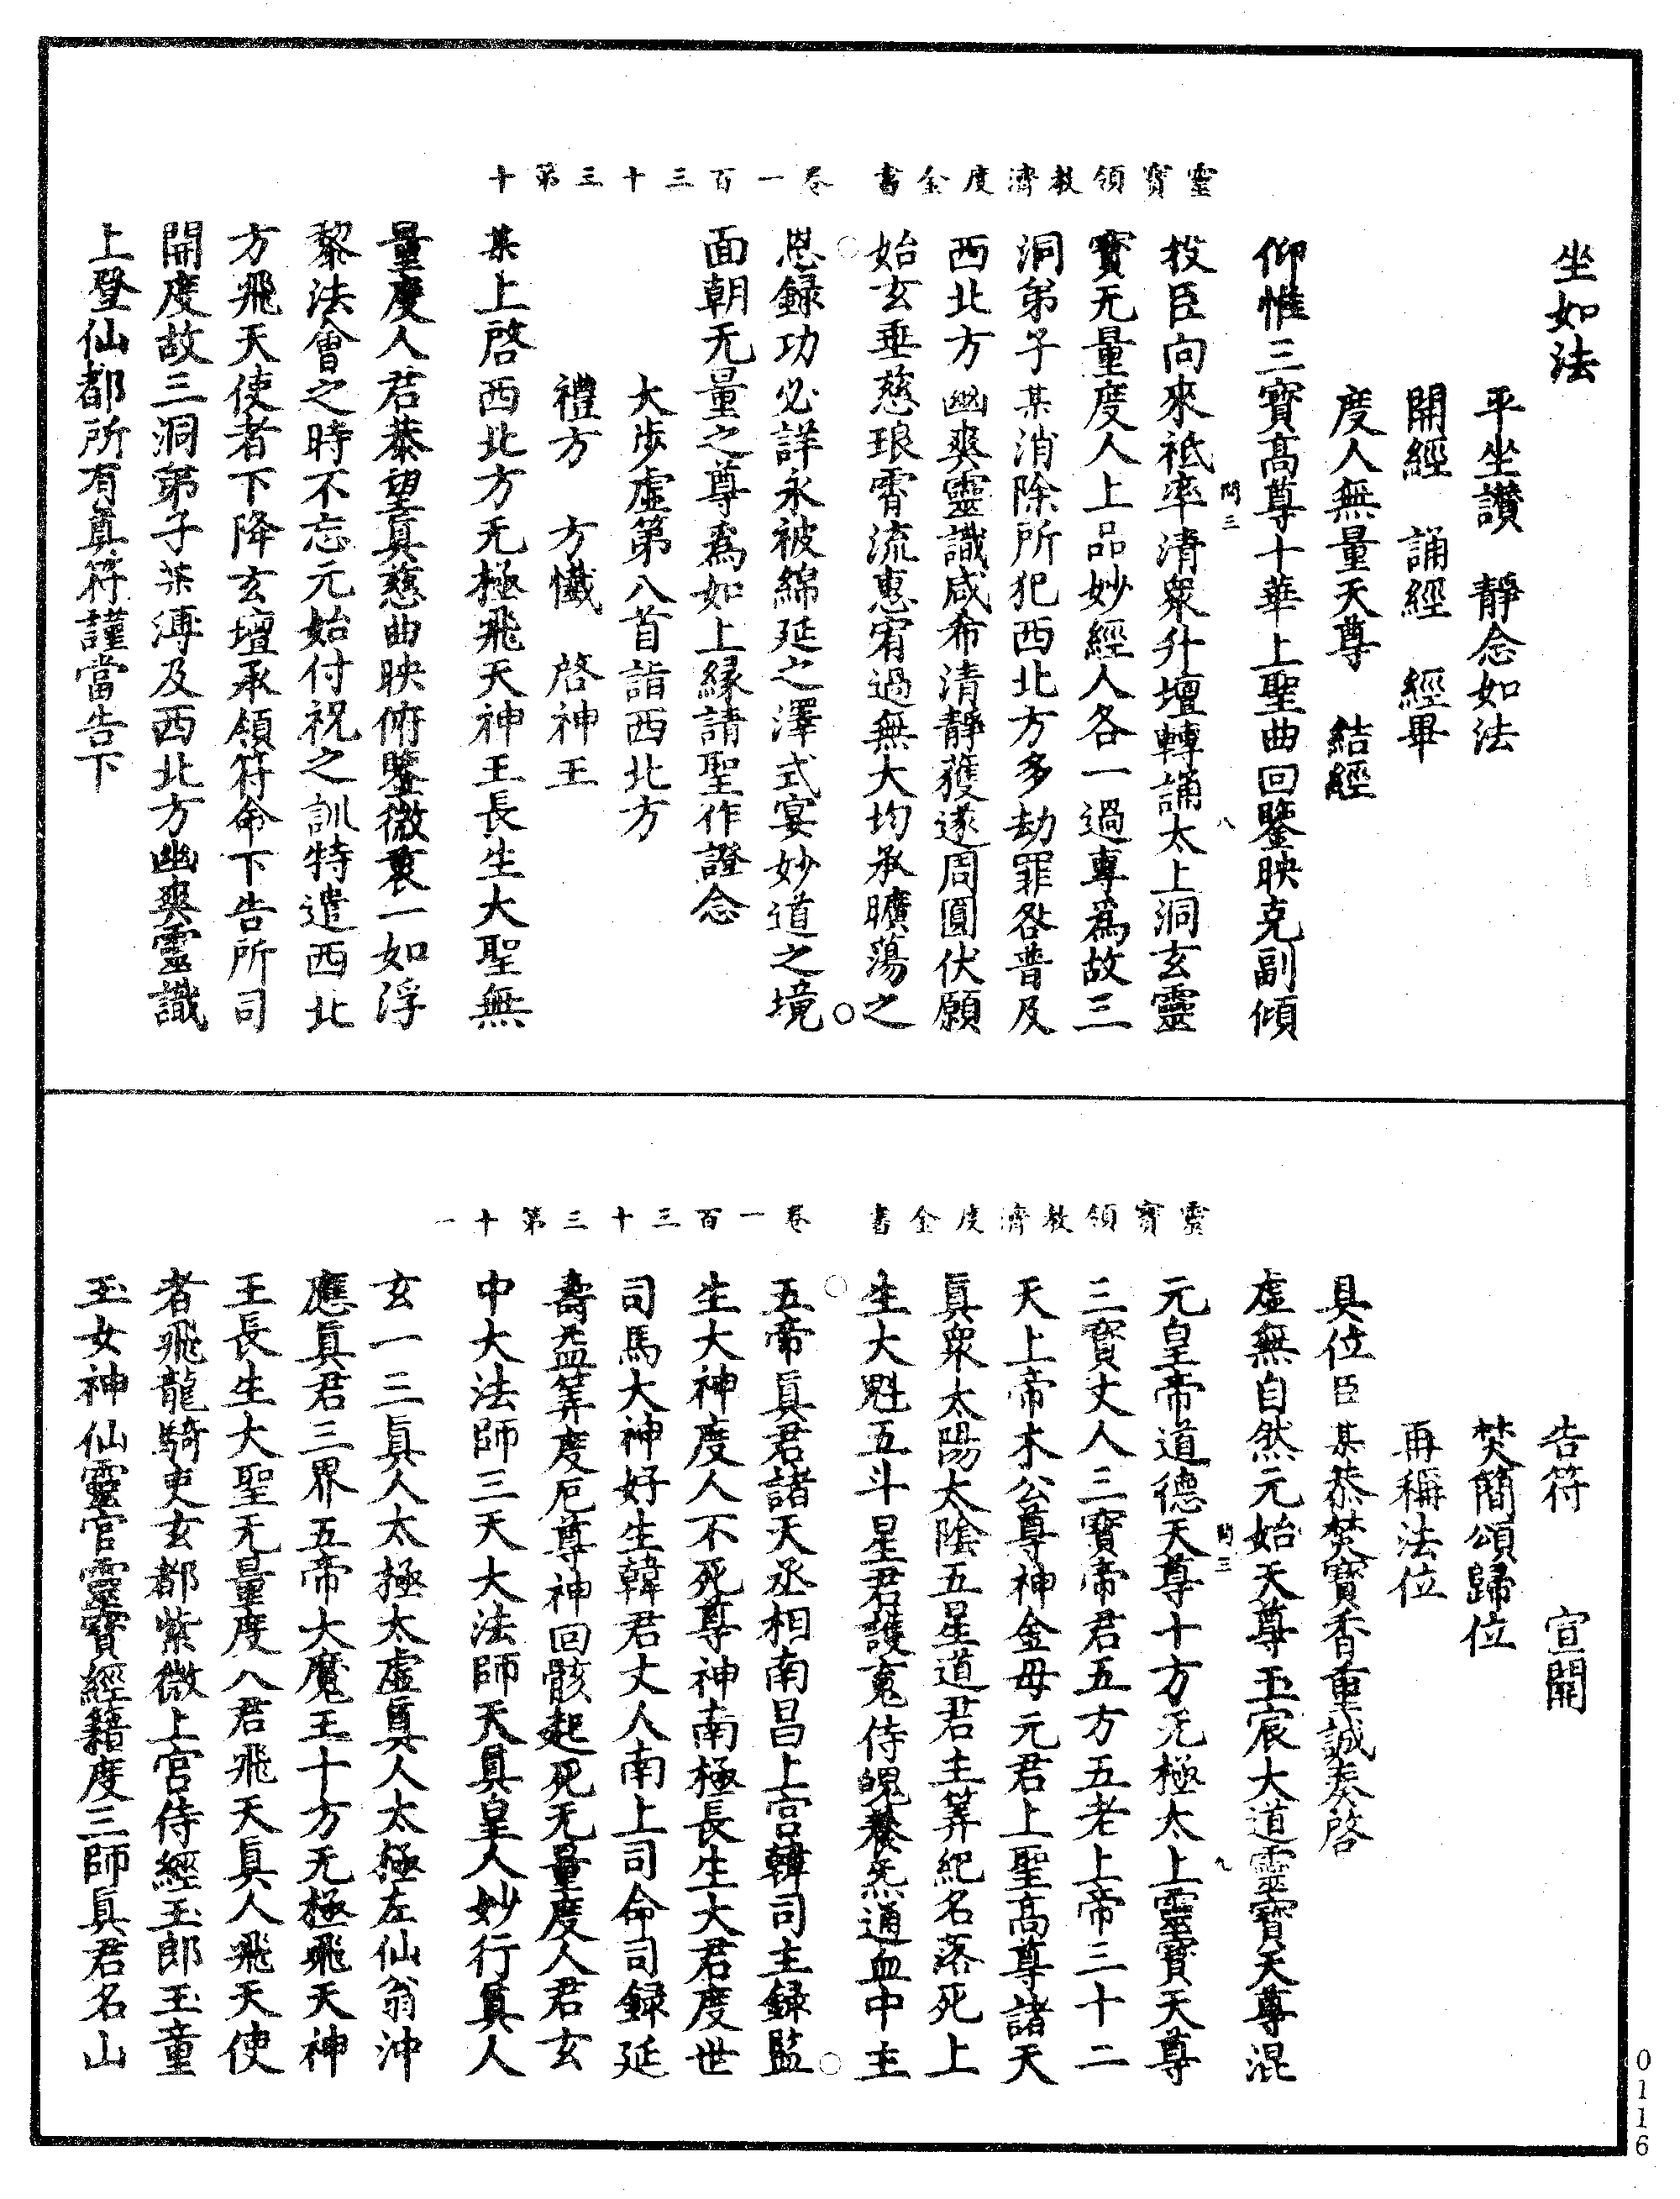 靈寶領教濟度金書　卷一百三十三第十
坐如法
平坐讚　靜念如法
開經　誦經　經畢
度人無量天尊　結經
仰惟三寶高尊十華上聖曲回鑒映克副傾
問三　八
投臣向來祗率清衆升壇轉誦太上洞玄靈
寶无量度人上品妙經人各一過專爲故三
洞弟子某消除所犯西北方多劫罪咎普及
西北方幽爽靈識咸希清靜獲遂周圓伏願
始玄垂慈琅霄流惠宥過無大均承曠蕩之
恩録功必詳永被綿延之澤式宴妙道之境
面朝无量之尊爲如上縁請聖作證念
大步虛第八首詣西北方
禮方　方懺　啓神王
某上啓西北方无極飛天神王長生大聖無
量度人君恭望眞慈曲映俯鑒微衷一如浮
黎法會之時不忘元始付祝之訓特遣西北
方飛天使者下降玄壇承領符命下告所司
開度故三洞弟子某溥及西北方幽爽靈識
上登仙都所有眞符謹當告下
靈寶領教濟度金書　卷一百三十三第十一
告符　宣關
焚簡頌歸位
再稱法位
具位臣某恭焚寶香重誠奏啓
虛無自然元始天尊玉宸大道靈寶天尊混
問三　九
元皇帝道德天尊十方无極太上靈寶天尊
三寶丈人三寶帝君五方五老上帝三十二
天上帝木公尊神金母元君上聖高尊諸天
眞衆太陽太陰五星道君主筭紀名落死上
生大魁五斗星君護䰟侍魄養炁通血中主
五帝眞君諸天丞相南昌上宮韓司主録監
生大神度人不死尊神南極長生大君度世
司馬大神好生韓君丈人南上司命司録延
壽益筭度厄尊神回骸起死无量度人君玄
中大法師三天大法師天眞皇人妙行眞人
玄一三眞人太極太虛眞人太極左仙翁沖
應眞君三界五帝大魔王十方无極飛天神
王長生大聖无量度人君飛天眞人飛天使
者飛龍騎吏玄都紫微上宮侍經玉郎玉童
玉女神仙靈官靈寶經籍度三師眞君名山
0116